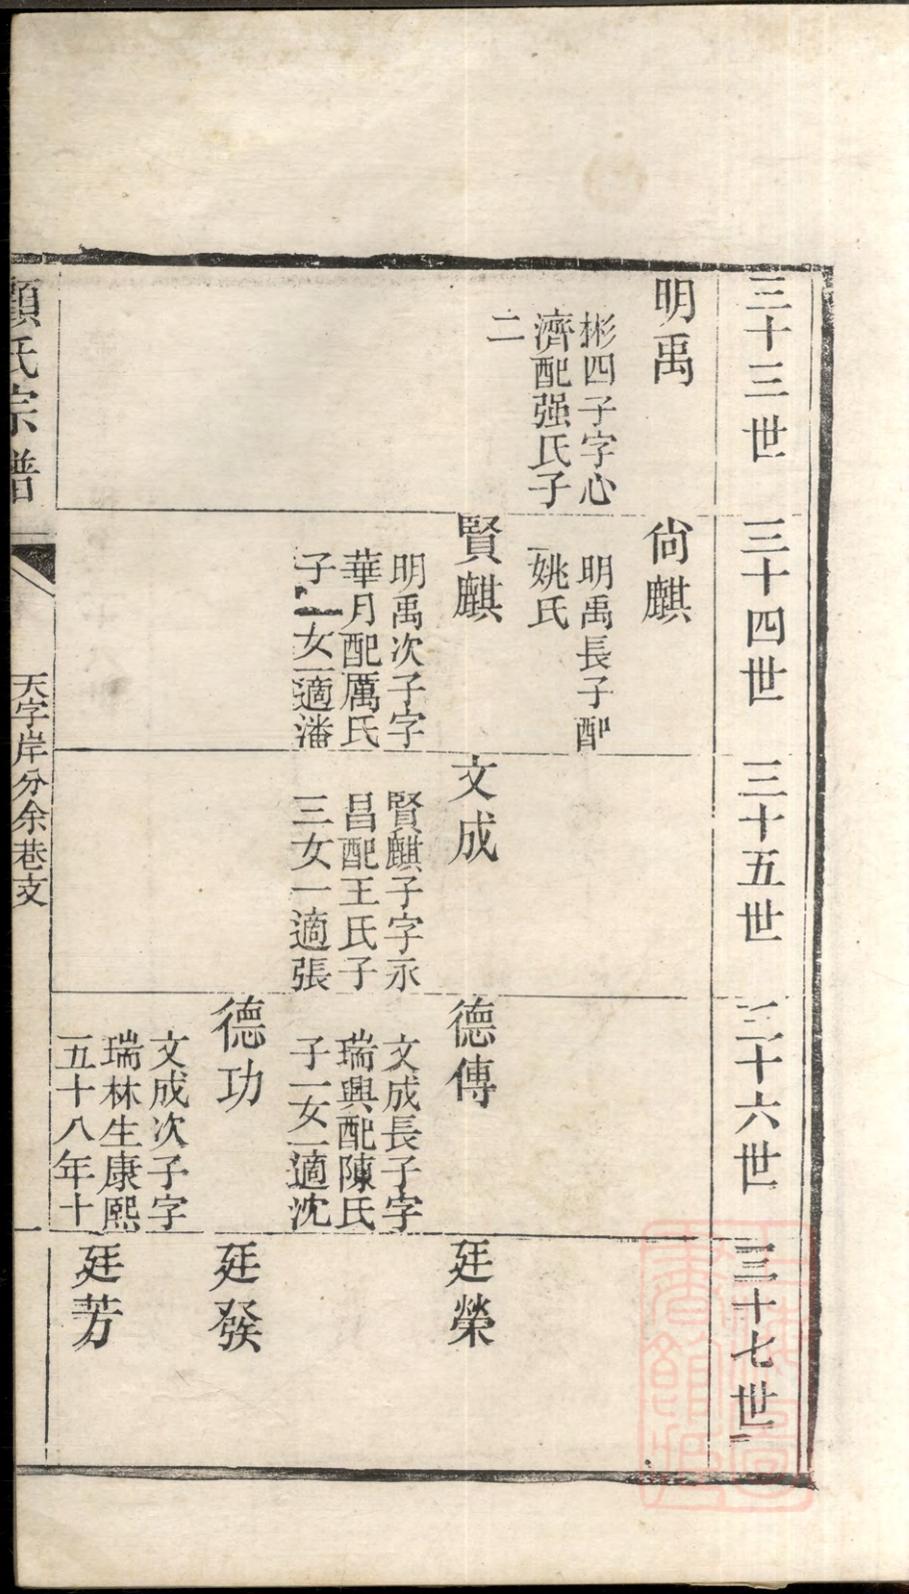 三十三世
明禹
彬四子字心
濟配强氏子
二
三十四世
尙麒
明禹長子配
姚氏
賢麒
明禹次子字
華月配厲氏
子一女一適潘
三十五世
文成
賢麒子字永
昌配王氏子
三女一適張
三十六世
德傳
文成長子字
瑞興配陳氏
子一女一適沈
德功
文成次子字
瑞林生康熙
五十八年十
三十七世
廷榮
廷發
廷芳
顧氏宗譜
天字岸分余巷支
一